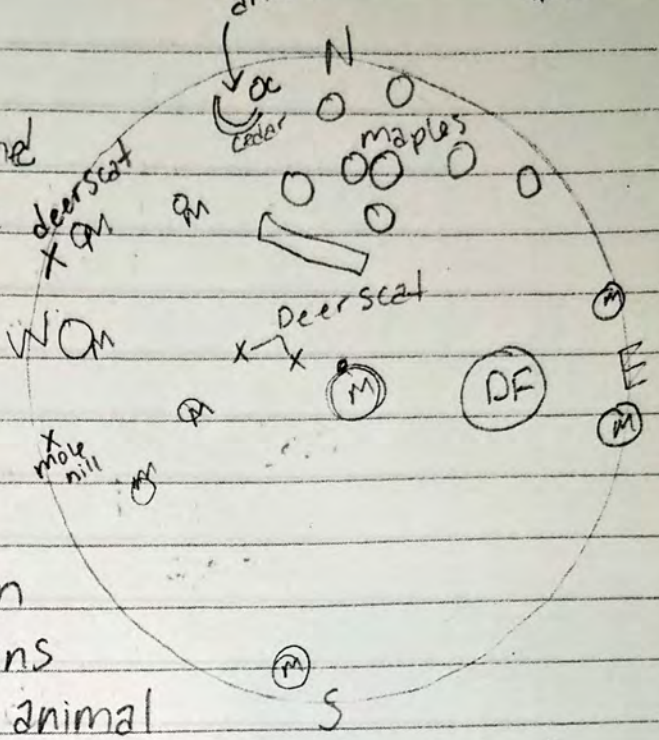 N
Cedar
maples
deer scat
X M
M
Deer scat
W M
X X
M
DF
E
M
M
M
X
mole
hill
M
n
ns
M
animal
S